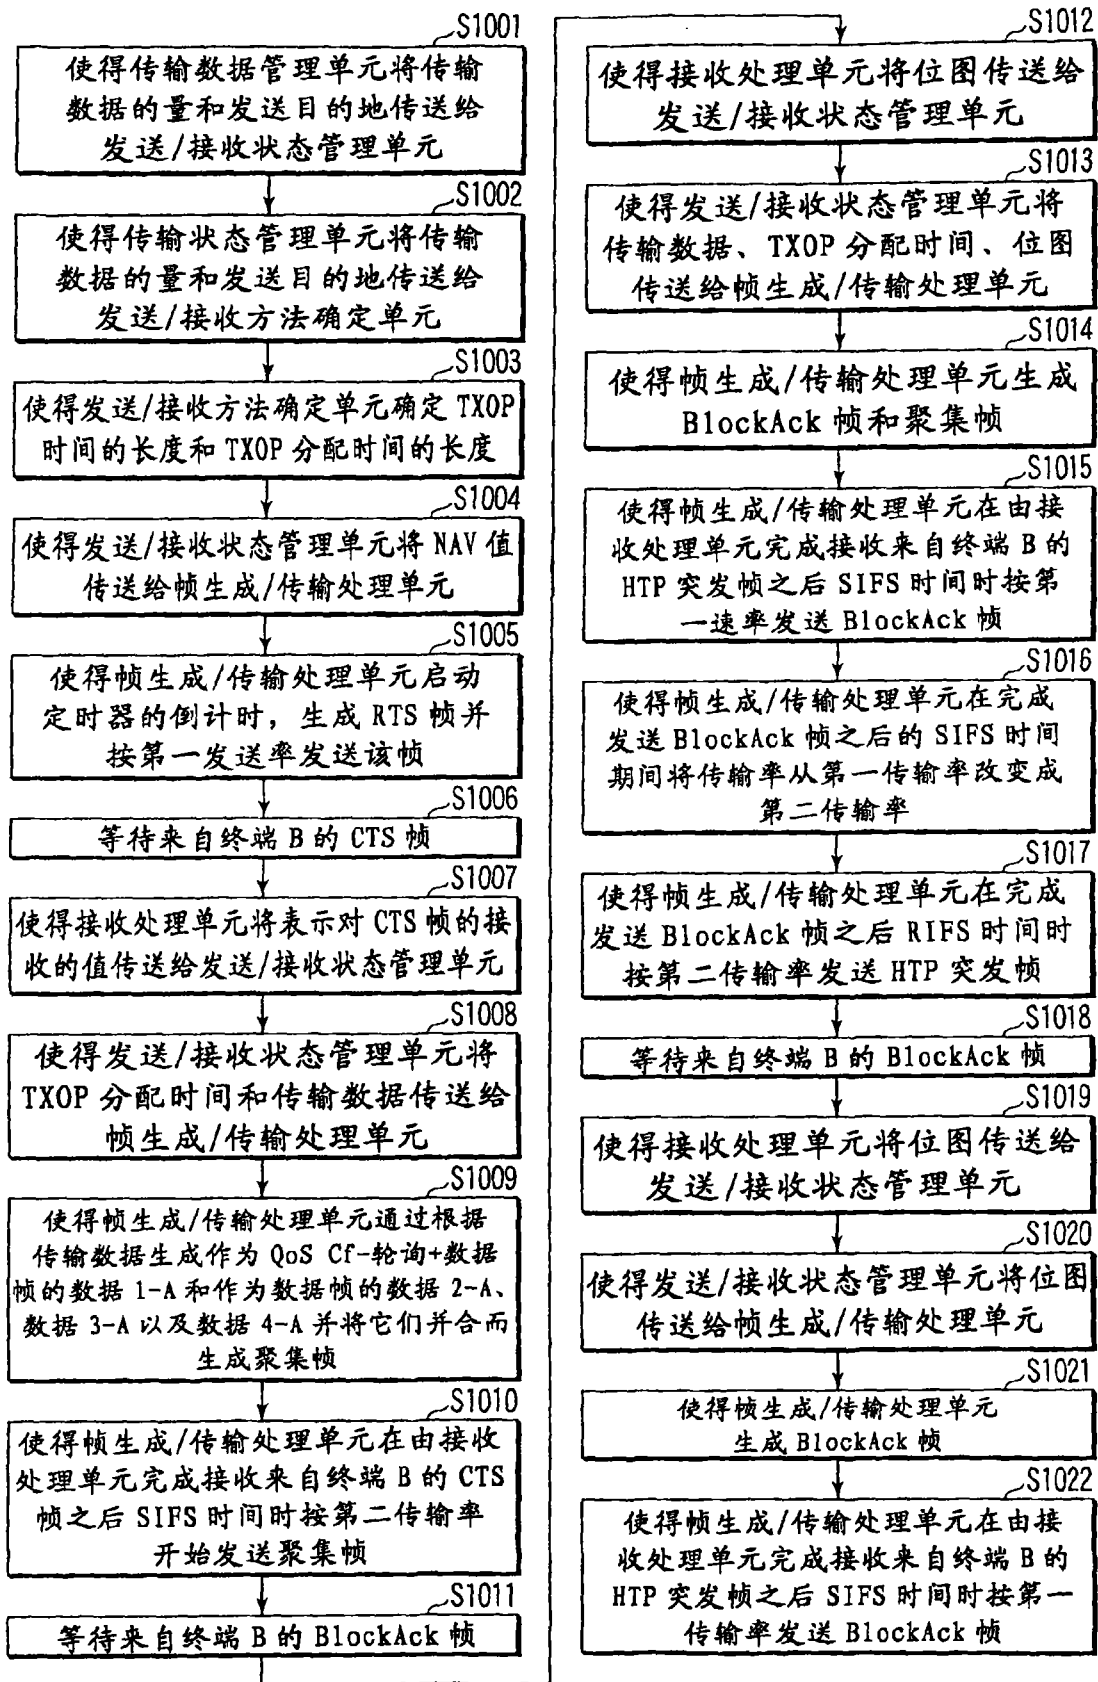 S1001
使得传输数据管理单元将传输
数据的量和发送目的地传送给
发送/接收状态管理单元
S1002
使得传输状态管理单元将传输
数据的量和发送目的地传送给
发送/接收方法确定单元
S1003
使得发送/接收方法确定单元确定 TXOP
时间的长度和 TXOP 分配时间的长度
S1004
使得发送/接收状态管理单元将 NAV 值
传送给帧生成/传输处理单元
S1005
使得帧生成/传输处理单元启动
定时器的倒计时，生成 RTS 帧并
按第一发送率发送该帧
S1006
等待来自终端 B 的 CTS 帧
S1007
使得接收处理单元将表示对 CTS 帧的接
收的值传送给发送/接收状态管理单元
S1008
使得发送/接收状态管理单元将
TXOP 分配时间和传输数据传送给
帧生成/传输处理单元
S1009
使得帧生成/传输处理单元通过根据
传输数据生成作为 QoS Cf-轮询+数据
帧的数据 1-A 和作为数据帧的数据 2-A、
数据 3-A 以及数据 4-A 并将它们并合而
生成聚集帧
S1010
使得帧生成/传输处理单元在由接收
处理单元完成接收来自终端 B 的 CTS
帧之后 SIFS 时间时按第二传输率
开始发送聚集帧
S1011
等待来自终端 B 的 BlockAck 帧
S1012
使得接收处理单元将位图传送给
发送/接收状态管理单元
S1013
使得发送/接收状态管理单元将
传输数据、TXOP 分配时间、位图
传送给帧生成/传输处理单元
S1014
使得帧生成/传输处理单元生成
BlockAck 帧和聚集帧
S1015
使得帧生成/传输处理单元在由接
收处理单元完成接收来自终端 B 的
HTP 突发帧之后 SIFS 时间时按第
一速率发送 BlockAck 帧
S1016
使得帧生成/传输处理单元在完成
发送 BlockAck 帧之后的 SIFS 时间
期间将传输率从第一传输率改变成
第二传输率
S1017
使得帧生成/传输处理单元在完成
发送 BlockAck 帧之后 RIFS 时间时
按第二传输率发送 HTP 突发帧
S1018
等待来自终端 B 的 BlockAck 帧
S1019
使得接收处理单元将位图传送给
发送/接收状态管理单元
S1020
使得发送/接收状态管理单元将位图
传送给帧生成/传输处理单元
S1021
使得帧生成/传输处理单元
生成 BlockAck 帧
S1022
使得帧生成/传输处理单元在由接
收处理单元完成接收来自终端 B 的
HTP 突发帧之后 SIFS 时间时按第一
传输率发送 BlockAck 帧